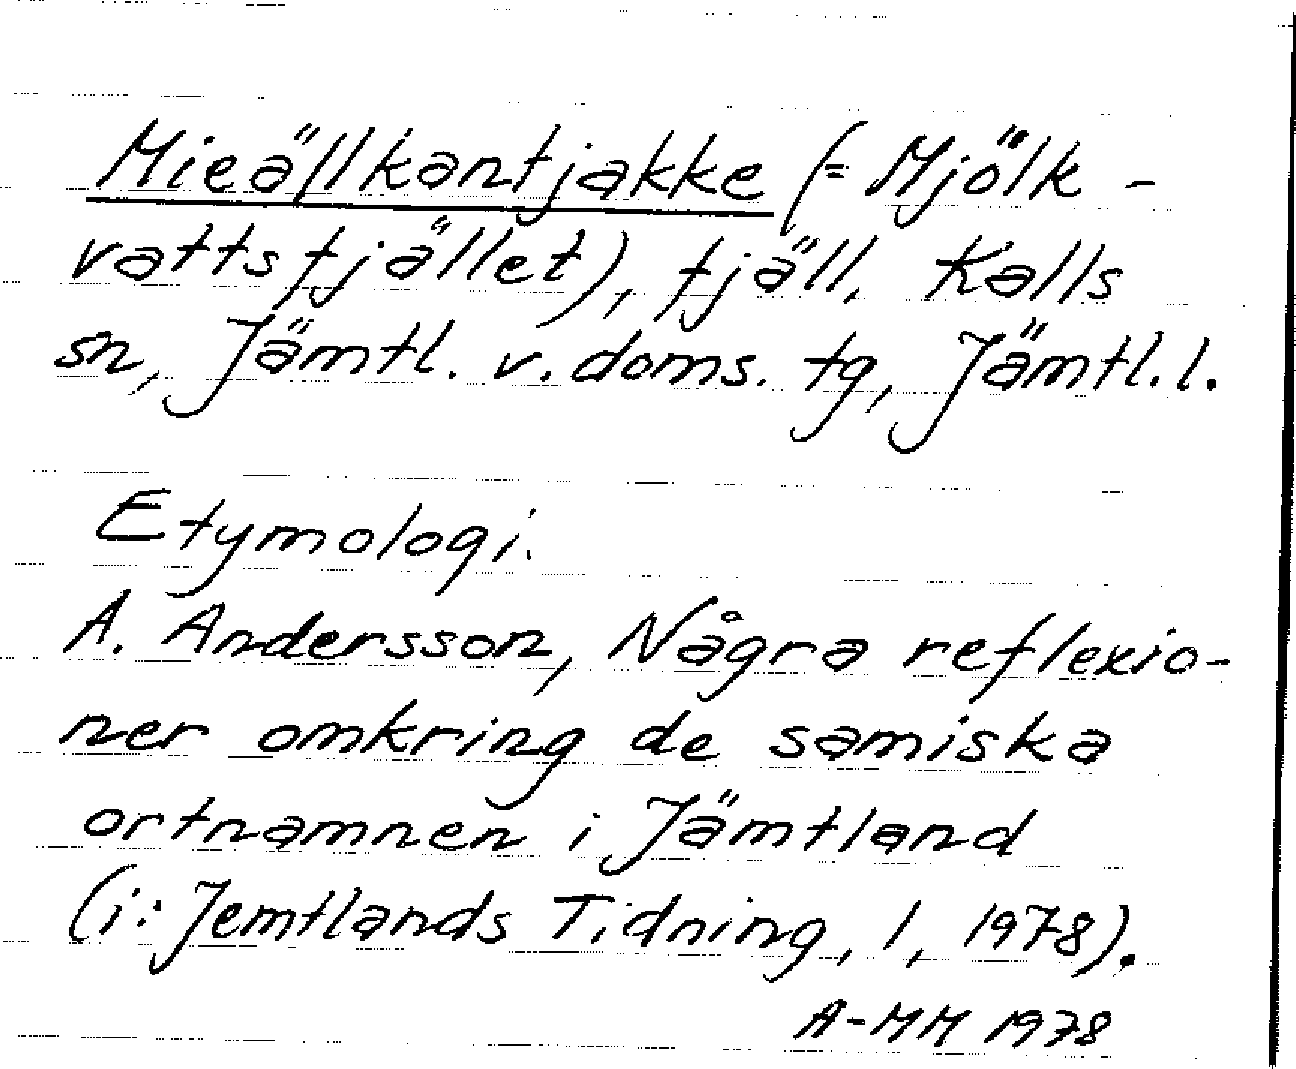 Mieällkantjakke (= Mjölk-
vattsfjället), fjäll, Kalls
sn, Jämtl. v. doms. tg, Jämtl. l.
Etymologi.
A. Andersson, Några reflexio-
ner omkring de samiska
ortnamnen i Jämtland
(i: Jemtlands Tidning, 1, 1978).
A-MM 1978